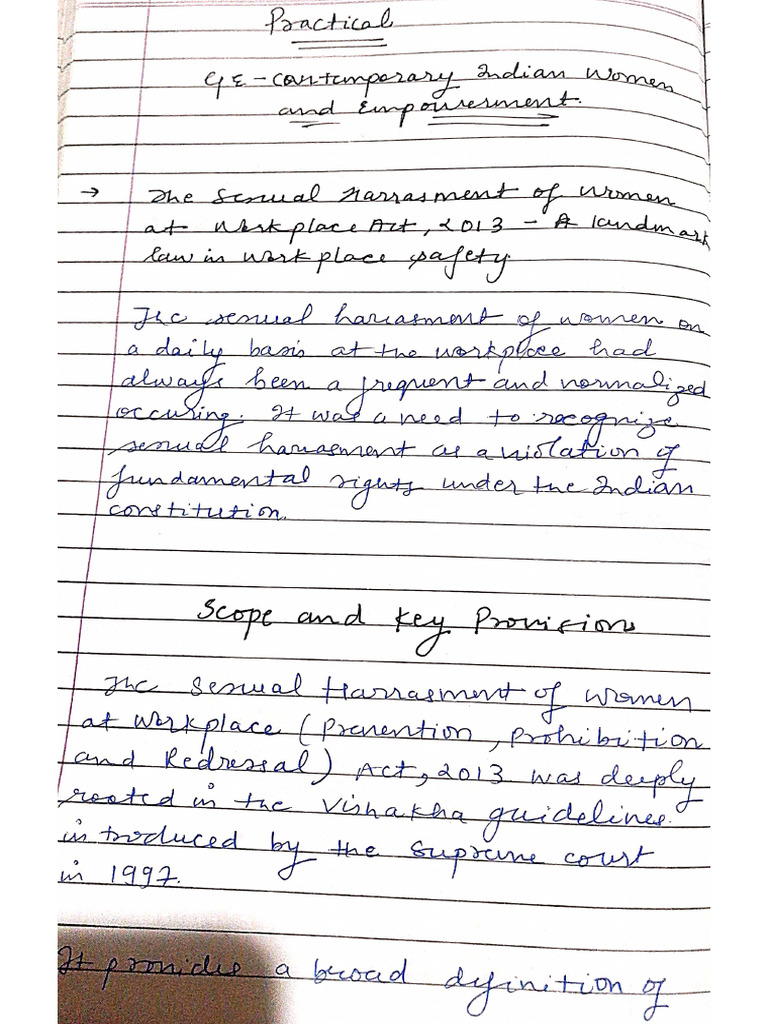 Practical
GE - Contemporary Indian Women
and Empowerment.
→ The Sexual Harrasment of Women
at Workplace Act, 2013 - A landmark
law in workplace safety
The sexual harrasment of women on
a daily basis at the workplace had
always been a frequent and normalized
occuring. It was a need to recognize
sexual harrasment as a violation of
fundamental rights under the Indian
constitution.
Scope and Key Provisions
The Sexual Harrasment of women
at workplace (Prevention, Prohibition
and Redressal) Act, 2013 was deeply
rooted in the Vishakha guidelines.
introduced by the Supreme court
in 1997.
It provides a broad definition of